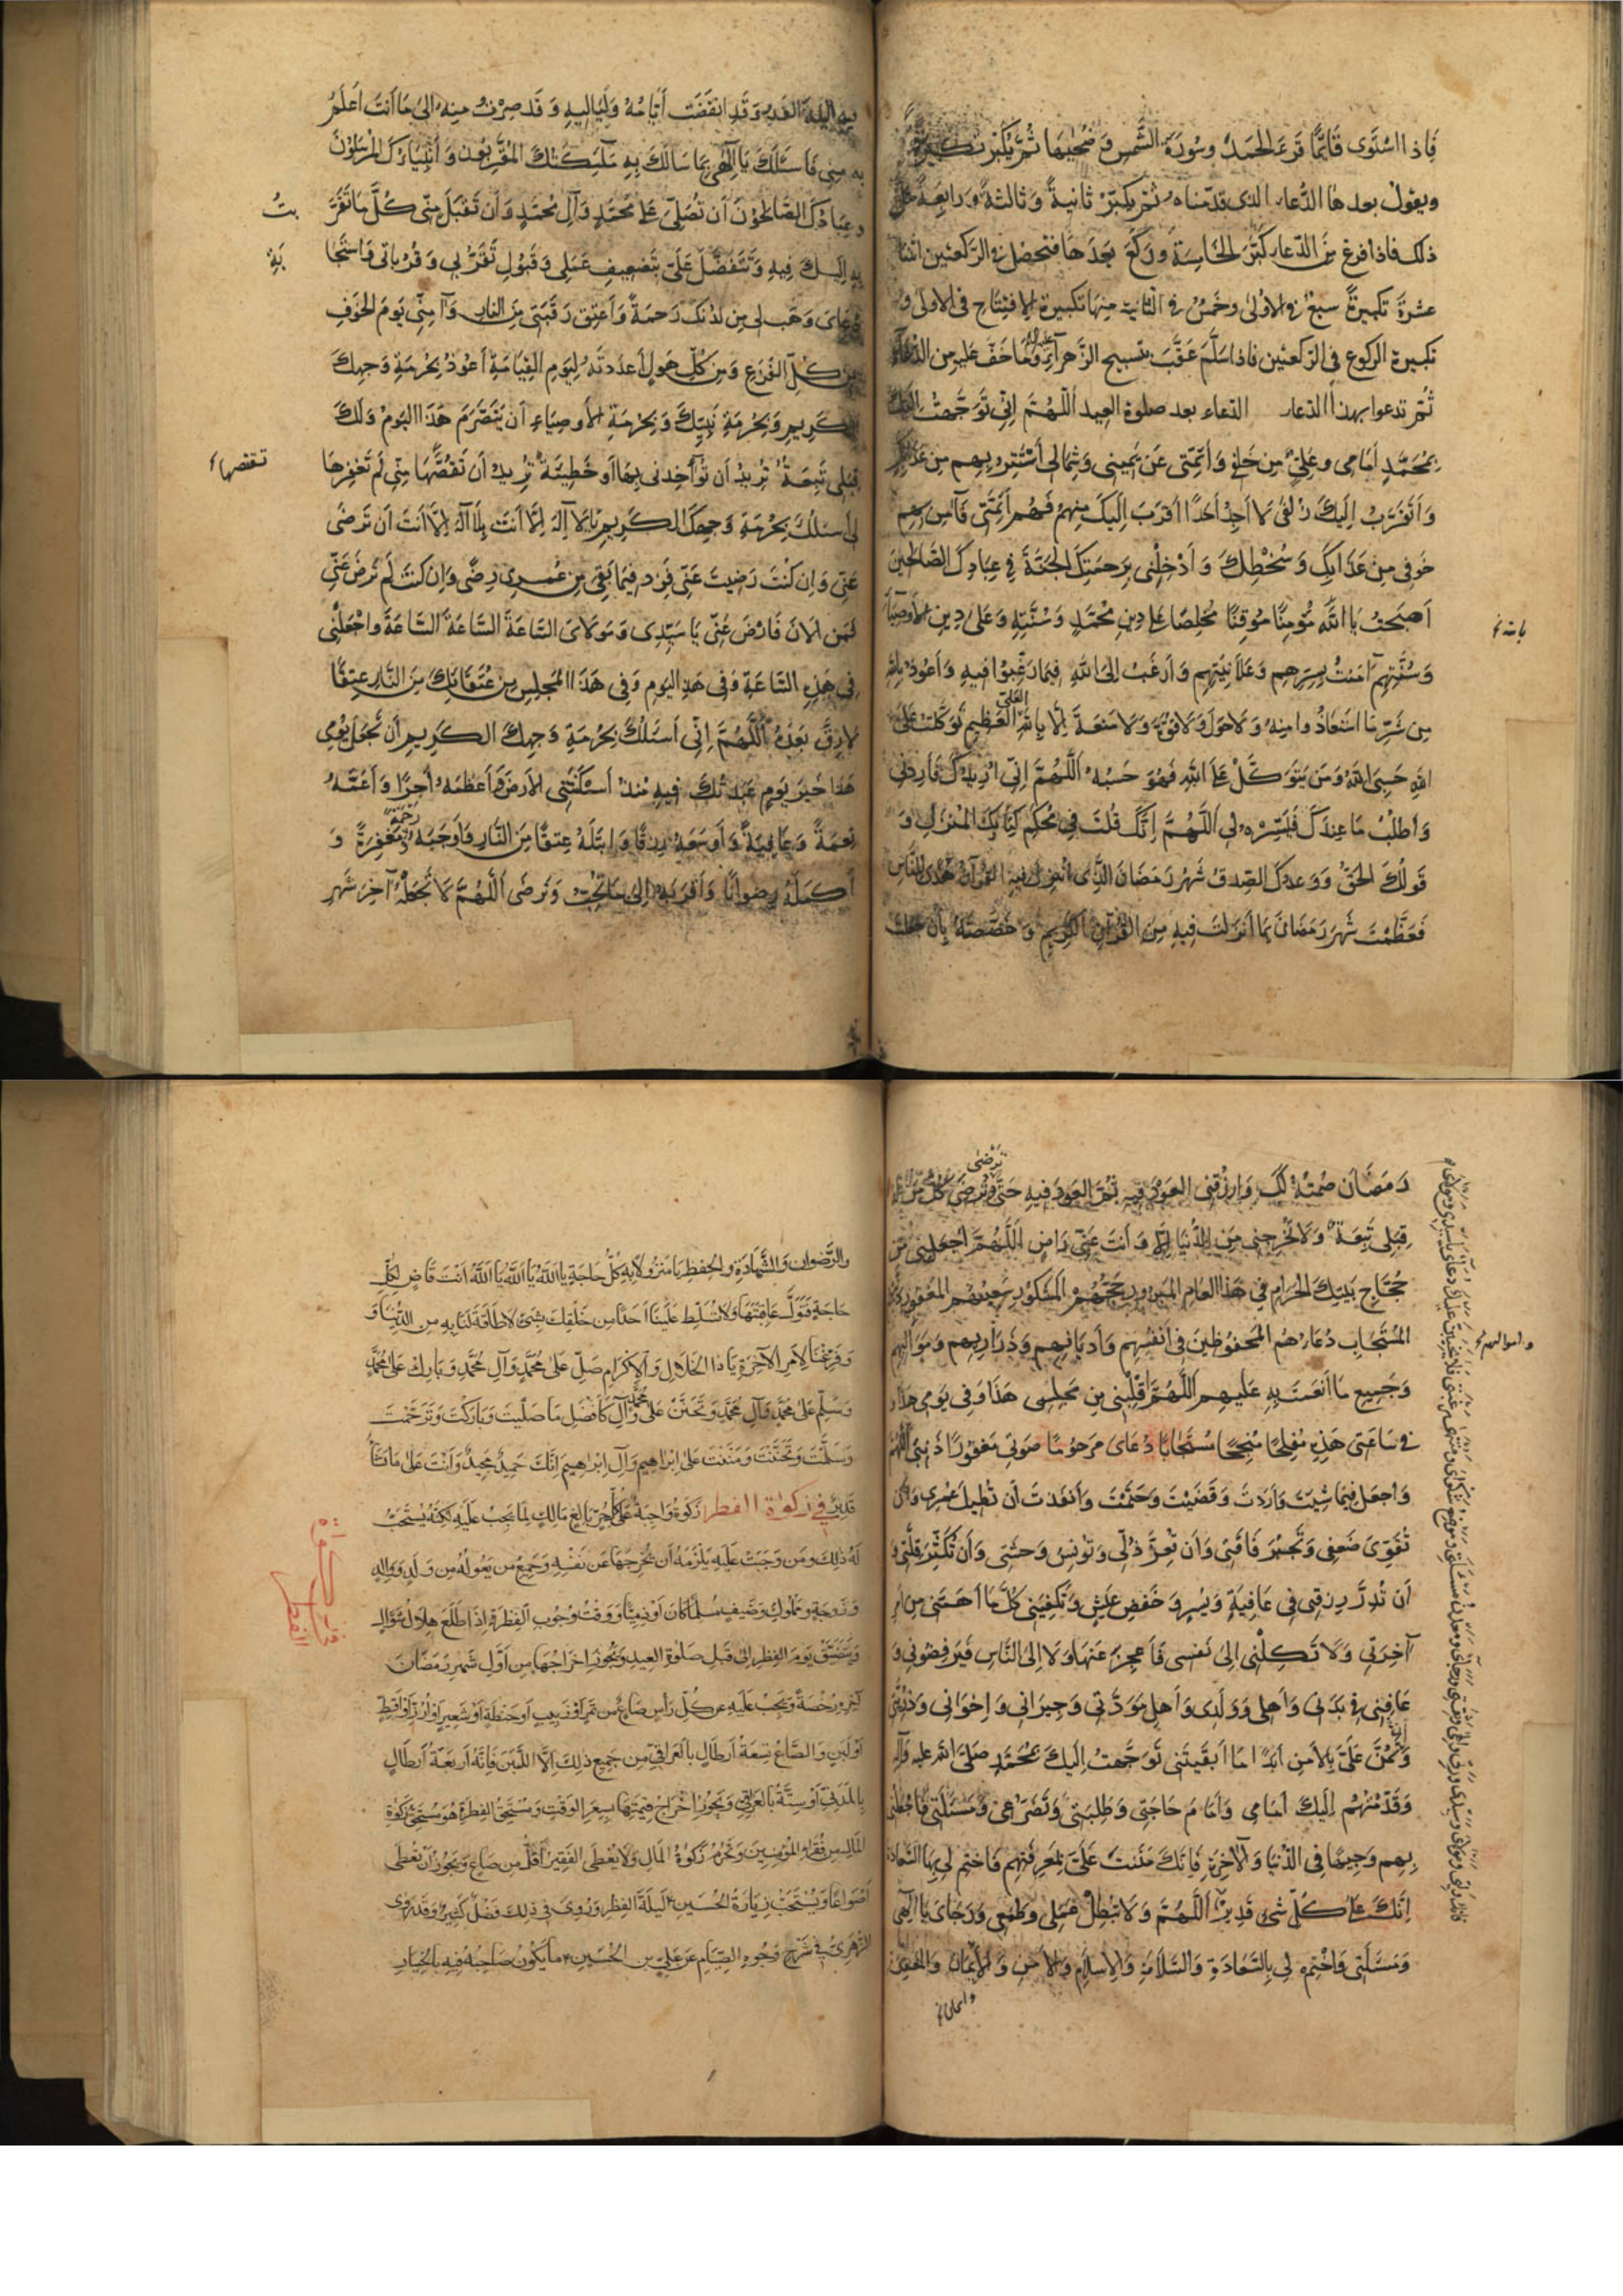 فَاِذَا اسْتَوَى قَائِمًا قَرَءَ الحَمْدَ وَسُورَةَ الشَّمْسِ وَضُحٰيهَا ثُمَّ يُكَبِّرُ تَكْبِيرَةً
ويقول بعدها الدُّعاء الذى قدّمناه ثم يكبّر ثانيةً وثالثةً ورابعةً مثل
ذلك فاذا فرغ من الدّعاء كبّر الخامسة وركع بعدها فتحصل فى الركعتين اثنتا
عشرة تكبيرةً سبع فى الاولى وخمس فى الثانية منها تكبيرة الافتتاح فى الاولى و
تكبيرة الركوع فى الركعتين فاذا سلّم عقّب بتسبيح الزهراء عليها السلام وما خفّ عليه من الدعاء
ثُمّ تدعوا بهذا الدّعاء الدعاء بعد صلوة العيد اَللّٰهُمَّ اِنّى تَوَجَّهْتُ اِلَيْكَ
بِمُحَمَّدٍ اَمَامِى وعَلِىٍّ مِنْ خَلْفِى وَاَئِمَّتِى عَنْ يَمِينى وَشِمَالى اَسْتَتِرُ بِهِم مِنْ عَذَابِكَ
وَاَتَقَرَّبُ اِلَيكَ زُلْفٰى لَا اَجِدُ اَحَدًا اَقْرَبَ اِلَيكَ مِنهُم فَهُم اَئِمَّتى فَآمِن بِهِم
خَوفِى مِنْ عَذَابِكَ وَسُخْطِكَ وَاَدْخِلْنى بِرَحمَتِكَ الجَنَّةَ فِى عِبَادِكَ الصَّالِحينَ
اَصبَحْتُ بِاللّٰهِ مُؤْمِنًا مُوقِنًا مُخلِصًا عَلى دِينِ مُحَمَّدٍ وَسُنَّتِهِ وَعَلى دِينِ الاَوصِيَاءِ
بالله خ
وَسُنَّتِهِم آمَنْتُ بِسِرِّهِم وَعَلَانِيَتِهِم وَاَرغَبُ اِلَى اللّٰهِ فِيمَا رَغِبُوا فِيهِ وَاَعُوذُ بِاللّٰهِ
مِن شَرِّ مَا اسْتَعَاذُوا مِنهُ وَلَا حَولَ وَلَا قُوَّةَ وَلَا مَنَعَةَ اِلَّا بِاللّٰهِ العَلِىِّ العَظِيمِ تَوَكَّلتُ عَلَى
اللّٰهِ حَسبِىَ اللّٰهُ وَمَن يَتَوَكَّلْ عَلَى اللّٰهِ فَهُوَ حَسْبُهُ اَللّٰهُمَّ اِنّى اُرِيدُكَ فَاَرِدنى
وَاَطلُبُ مَا عِندَكَ فَيَسِّرْهُ لى اَللّٰهُمَّ اِنَّكَ قُلتَ فِى مُحكَمِ كِتَابِكَ المُنْزَلِ وَ
قَولُكَ الحَقُّ وَوَعدُكَ الصِّدقُ شَهْرُ رَمَضَانَ الَّذِى اُنْزِلَ فِيهِ القُرآنُ هُدًى لِلنَّاسِ
فَعَظَّمْتَ شَهرَ رَمَضَانَ بِمَا اَنزَلتَ فِيهِ مِنَ القُرآنِ الكَرِيمِ وَخَصَّصتَهُ بِاَن جَعَلتَ
فِيهِ لَيلَةَ القَدرِ وَقَدِ انقَضَت اَيَّامُهُ وَلَيَالِيهِ وَقَد صِرتُ مِنهُ اِلىٰ مَا اَنتَ اَعلَمُ
بِهِ مِنِّى فَاَسئَلُكَ يَا اِلٰهِى بِمَا سَاَلَكَ بِهِ مَلٰئِكَتُكَ المُقَرَّبُونَ وَاَنبِيَاؤُكَ المُرسَلُونَ
وعِبَادُكَ الصَّالِحُونَ اَن تُصَلِّىَ عَلى مُحَمَّدٍ وَآلِ مُحَمَّدٍ وَاَن تَقبَلَ مِنّى كُلَّ مَا تَقَرَّ
بتُ
بِهِ اِلَيكَ فِيهِ وَتَتَفَضَّلَ عَلَىَّ بِتَضعِيفِ عَمَلِى وَقَبُولِ تَقَرُّبِى وَقُرُبَاتى وَاستِجَا
بَةِ
دُعَاىَ وَهَب لى مِن لَدُنكَ رَحمَةً وَاَعتِق رَقَبَتى مِنَ النَّارِ وَآمِنّى يَومَ الخَوفِ
مِن كُلِّ الفَزَعِ وَمِن كُلِّ هَولٍ اَعدَدتَهُ لِيَومِ القِيَامَةِ اَعُوذُ بِحُرمَةِ وَجهِكَ
الكَرِيمِ وَبِحُرمَةِ نَبِيِّكَ وَبِحُرمَةِ الاَوصِيَاءِ اَن يَتَصَرَّمَ هَذَا اليَومُ وَلَكَ
قِبَلِى تَبِعَةٌ تُرِيدُ اَن تُؤَاخِذَنى بِهَا اَو خَطِيئَةٌ تُرِيدُ اَن تَقتَصَّهَا مِنّى لَم تَغفِرهَا
لى اَسئَلُكَ بِحُرمَةِ وَجهِكَ الكَرِيمِ يَا لَا اِلٰهَ اِلَّا اَنتَ بِلَا اِلٰهَ اِلَّا اَنتَ اَن تَرضى
عَنّى وَاِن كُنتَ رَضِيتَ عَنّى فَزِد فِيمَا بَقِىَ مِن عُمرِى رِضًى وَاِن كُنتَ لَم تَرضَ عَنّى
فَمِنَ الآنَ فَارضَ عَنّى يَا سَيِّدِى وَمَولَاىَ السَّاعَةَ السَّاعَةَ السَّاعَةَ وَاجعَلنِى
فِى هَذِهِ السَّاعَةِ وَفِى هَذَا اليَومِ وَفِى هَذَا المَجلِسِ مِن عُتَقَائِكَ مِنَ النَّارِ عِتقًا
لَا رِقَّ بَعدَهُ اَللّٰهُمَّ اِنّى اَسئَلُكَ بِحُرمَةِ وَجهِكَ الكَرِيمِ اَن تَجعَلَ يَومِى
هَذَا خَيرَ يَومٍ عَبَدتُكَ فِيهِ مُنذُ اَسكَنتَنِى الاَرضَ اَعظَمَهُ اَجرًا وَاَعَمَّهُ
نِعمَةً وَعَافِيَةً وَاَوسَعَهُ رِزقًا وَاَبتَلَهُ عِتقًا مِنَ النَّارِ وَاَوجَبَهُ مَغفِرَةً وَ
رَحمَةً
اَكمَلَهُ رِضوَانًا وَاَقرَبَهُ اِلى مَا تُحِبُّ وَتَرضى اَللّٰهُمَّ لَا تَجعَلهُ آخِرَ شَهرِ
رَمَضَانَ صُمتُهُ لَكَ وَارزُقنِى العَودَ فِيهِ ثُمَّ العَودَ فِيهِ حَتّى تَرضى
قِبَلِى تَبِعَةٌ وَلَا تُخرِجنِى مِنَ الدُّنيَا اِلَّا وَاَنتَ عَنّى رَاضٍ اَللّٰهُمَّ اجعَلنِى مِن
حُجَّاجِ بَيتِكَ الحَرَامِ فِى هَذَا العَامِ المَبرُورِ حَجُّهُم المَشكُورِ سَعيُهُم المَغفُورِ
المُستَجَابِ دُعَاؤُهُم المَحفُوظِينَ فِى اَنفُسِهِم وَاَديَانِهِم وَذَرَارِيهِم
واموالهم خ
وَجَمِيعِ مَا اَنعَمتَ بِهِ عَلَيهِم اَللّٰهُمَّ اقلِبنِى مِن مَجلِسِى هَذَا وَفِى يَومِى هَذَا وَ
فى سَاعَتِى هَذِهِ مُفلِحًا مُنجِحًا مُستَجَابًا دُعَاىَ مَرحُومًا صَوتِى مَغفُورًا ذَنبِى اللّٰهُمَّ
وَاجعَل فِيمَا شِئتَ وَاَرَدتَ وَقَضَيتَ وَحَتَمتَ وَاَنفَذتَ اَن تُطِيلَ عُمرِى وَاَن
تُقَوِّىَ ضَعفِى وَتَجبُرَ فَاقَتى وَاَن تُعِزَّ ذُلّى وَتُونِسَ وَحشَتى وَاَن تُكَثِّرَ قِلَّتى وَ
اَن تُدِرَّ رِزقِى فِى عَافِيَةٍ وَيُسرٍ وَخَفضِ عَيشٍ وَتَكفِيَنِى كُلَّ مَا اَهَمَّنِى مِن اَمرِ
آخِرَتى وَلَا تَكِلنِى اِلى نَفسِى فَاَعجِزَ عَنهَا وَلَا اِلَى النَّاسِ فَيَرفُضُونى وَ
عَافِنِى فى بَدَنى وَاَهلِى وَوَلَدِى وَاَهلِ مَوَدَّتى وَجِيرَانى وَاِخوَانى وَذُرِّيَّتى
وَتَمُنَّ عَلَىَّ بِالاَمنِ اَبَدًا مَا اَبقَيتَنِى تَوَجَّهتُ اِلَيكَ بِمُحَمَّدٍ صَلَّى اللّٰه عليه وَآلِهِ
وَقَدَّمتُهُم اِلَيكَ اَمَامِى وَاَمَامَ حَاجَتِى وَطَلِبَتِى وَتَضَرُّعِى وَمَسئَلَتى فَاجعَلنى
بِهِم وَجِيهًا فِى الدُّنيَا وَالآخِرَةِ فَاِنَّكَ مَنَنتَ عَلَىَّ بِمَعرِفَتِهِم فَاختِم لِى بِهَا السَّعَادَةَ
اِنَّكَ عَلى كُلِّ شَىءٍ قَدِيرٌ اَللّٰهُمَّ وَلَا تُبطِل عَمَلِى وَطَمَعِى وَرَجَاىَ يَا اِلٰهِى
وَمَسئَلَتى وَاختِم لِى بِالسَّعَادَةِ وَالسَّلَامَةِ وَالاِسلَامِ وَالاَمنِ وَالاِيمَانِ
والرِّضوانِ وَالشَّهَادَةِ والحِفظِ يَا مَنزُولًا بِهِ كُلُّ حَاجَةٍ يَا اَللّٰهُ يَا اَللّٰهُ يَا اَللّٰهُ اَنتَ قَاضٍ لِكُلِّ
حَاجَةٍ فَتَوَلَّ عَاقِبَتَهَا وَلَا تُسَلِّط عَلَينَا اَحَدًا مِن خَلقِكَ بِشَىءٍ لَا طَاقَةَ لَنَا بِهِ مِنَ الدُّنيَا وَ
وَفَرِّغنَا لِاَمرِ الآخِرَةِ يَا ذَا الجَلَالِ وَالاِكرَامِ صَلِّ عَلى مُحَمَّدٍ وَآلِ مُحَمَّدٍ وَبَارِك عَلى مُحَمَّدٍ
وَسَلِّم عَلى مُحَمَّدٍ وَآلِ مُحَمَّدٍ وَتَحَنَّن عَلى مُحَمَّدٍ وَآلِ كَاَفضَلِ مَا صَلَّيتَ وَبَارَكتَ وَتَرَحَّمتَ
وَسَلَّمتَ وَتَحَنَّنتَ وَمَنَنتَ عَلى اِبرٰهِيمَ وَآلِ اِبرٰهِيمَ اِنَّكَ حَمِيدٌ مَجِيدٌ وَاَنتَ عَلى مَا تَشَاءُ
قَدِيرٌ فى زكوة الفطر زَكوةٌ وَاجِبَةٌ عَلى كُلِّ حُرٍّ بَالِغٍ مَالِكٍ لِمَا يَجِبُ عَلَيهِ لٰكِنَّهُ يُستَحَبُّ
لَهُ ذٰلِكَ وَمَن وَجَبَت عَلَيهِ يَلزَمُهُ اَن يُخرِجَهَا عَن نَفسِهِ وَجَمِيعِ مَن يَعُولُهُ مِن وَلَدٍ وَوَالِدٍ
وَزَوجَةٍ وَمَملُوكٍ وَضَيفٍ مُسلِمًا كَانَ اَو ذِمِّيًّا وَوَقتُ وُجُوبِ الفِطرَةِ اِذَا طَلَعَ هِلَالُ شَوَّالٍ
وَيَتَضَيَّقُ يَومَ الفِطرِ اِلى قَبلِ صَلٰوةِ العِيدِ وَيَجُوزُ اِخرَاجُهَا مِن اَوَّلِ شَهرِ رَمَضَانَ
رُخصَةً وَيَجِبُ عَلَيهِ عَن كُلِّ رَاسٍ صَاعٌ مِن تَمرٍ اَو زَبِيبٍ اَو حِنطَةٍ اَو شَعِيرٍ اَو اُرُزٍّ اَو اَقِطٍ
اَو لَبَنٍ وَالصَّاعُ تِسعَةُ اَرطَالٍ بِالعِرَاقِىِّ مِن جَمِيعِ ذٰلِكَ اِلَّا اللَّبَنَ فَاِنَّهُ اَربَعَةُ اَرطَالٍ
بِالمَدَنِىِّ اَو سِتَّةٌ بِالعِرَاقِىِّ وَيَجُوزُ اِخرَاجُ قِيمَتِهَا بِسِعرِ الوَقتِ وَمُستَحِقُّ الفِطرَةِ هُوَ مُستَحِقُّ زَكٰوةِ
المَالِ مِن فُقَرَاءِ المُؤمِنِينَ وَتَحرُمُ زَكٰوةُ المَالِ وَلَا يُعطَى الفَقِيرُ اَقَلَّ مِن صَاعٍ وَيَجُوزُ اَن يُعطى
اَصوَاعًا وَيُستَحَبُّ زِيَارَةُ الحُسَينِ لَيلَةَ الفِطرِ وَرُوِىَ فى ذٰلِكَ فَضلٌ كَثِيرٌ وَقَد رَوَى
الزُّهرِىُّ فى شَرحِ وُجُوهِ الصِّيَامِ عَن عَلِىِّ بنِ الحُسَينِ مَا يَكُونُ صَاحِبُهُ فِيهِ بِالخِيَارِ